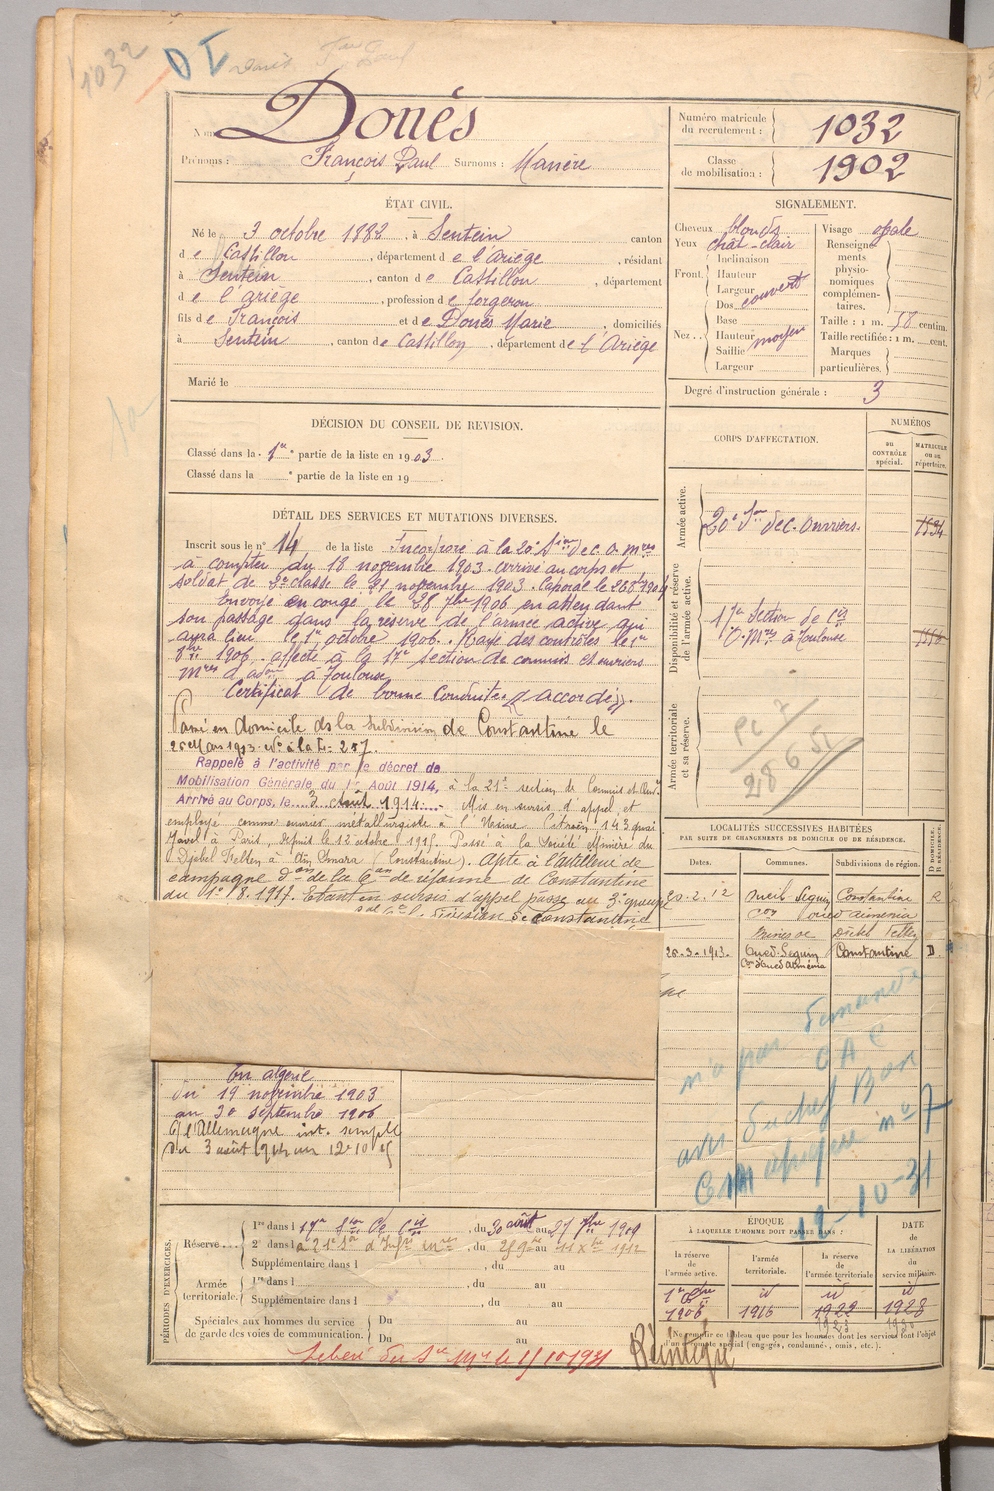 1032
D I
Nom Doués
Prénoms : François Paul Surnoms : Manère
Numéro matricule du recrutement : 1032
Classe de mobilisation : 1902
ÉTAT CIVIL.
Né le 3 octobre 1882, à Sentein canton
de Castillon, département de l'Ariège, résidant
à Sentein, canton de Castillon, département
de l'ariège, profession de forgeron
fils de François et de Doués Marie, domiciliés
à Sentein, canton de Castillon, département de l'Ariège
Marié le
SIGNALEMENT.
Cheveux blonds
Yeux chat-clair
Front. Inclinaison
Hauteur
Largeur
Nez.. Dos couvert
Base
Hauteur moyen
Saillie
Largeur
Visage opale
Renseignements physionomiques complémentaires.
Taille : 1 m. 58 centim.
Taille rectifiée : 1 m. cent.
Marques particulières.
Degré d'instruction générale : 3
DÉCISION DU CONSEIL DE REVISION.
Classé dans la 1re partie de la liste en 1903.
Classé dans la partie de la liste en 19
DÉTAIL DES SERVICES ET MUTATIONS DIVERSES.
Inscrit sous le n° 14 de la liste Incorporé à la 20e Sion de C. O. Mres
à compter du 18 novembre 1903. arrivé au corps et
soldat de 2e classe le 21 novembre 1903. Caporal le 26 8bre 1904
Envoyé en congé le 28 7bre 1906 en attendant
son passage dans la réserve de l'armée active, qui
aura lieu le 1er octobre 1906. Rayé des contrôles le 1er
8bre 1906. affecté à la 17e section de commis et ouvriers
Mres d'adon à Toulouse
Certificat de bonne conduite "accordé".
Passé en domicile ds la subdivision de Constantine le
26 Mars 1913.
Rappelé à l'activité par le décret de
Mobilisation Générale du 1er Août 1914, à la 21e section de Commis et Ouvrs
Arrivé au Corps, le 3 Août 1914. Mis en sursis d'appel et
employé comme ouvrier métallurgiste à l'Usine Citroën 143 quai
Javel à Paris, depuis le 12 octobre 1915. Passé à la Société Minière du
Djebel Felten à Aïn Smara (Constantine). apte à l'artillerie de
campagne don de la Con de réforme de Constantine
du 1er 8. 1917. Etant en sursis d'appel passe au 3e groupe
Constantine
En algérie
du 19 novembre 1903
au 30 septembre 1906
C/ l'Allemagne int. simple
du 3 août 1914 au 12-10 15
CORPS D'AFFECTATION.
NUMÉROS
au CONTRÔLE spécial.
MATRICULE ou au répertoire.
Armée active.
20e Son de C. Ouvriers.
Disponibilité et réserve de l'armée active.
17e Section de Cis
O. Mres à Toulouse
Armée territoriale et sa réserve.
28 6 51
LOCALITÉS SUCCESSIVES HABITÉES
PAR SUITE DE CHANGEMENTS DE DOMICILE OU DE RÉSIDENCE.
Dates. Communes. Subdivisions de région. D. DOMICILE. R. RÉSIDENCE.
20-2.12 Oued Seguin Constantine R
Mines de Djebel Felten
26-3-1913. Oued-Seguin Constantine D
n'a pas demandé
C A C
avis du chef Bon
12-10-31
PÉRIODES D'EXERCICES.
Réserve... 1re dans l 17e Son de Cis, du 30 août au 27 7bre 1909
2e dans l, du au 1912
Supplémentaire dans l, du au
Armée territoriale. 1re dans l, du au
Supplémentaire dans l, du au
Spéciales aux hommes du service de garde des voies de communication. Du au
Du au
ÉPOQUE
À LAQUELLE L'HOMME DOIT PASSER DANS :
DATE DE LA LIBÉRATION du service militaire.
la réserve de l'armée active. l'armée territoriale. la réserve de l'armée territoriale
1er 8bre id id id
1906 1916 1922 1928
Ne remplir ce tableau que pour les hommes dont les services font l'objet d'un compte spécial (engagés, condamnés, omis, etc.).
Libéré du Sce Mre le 1/10 1931
Réintégré